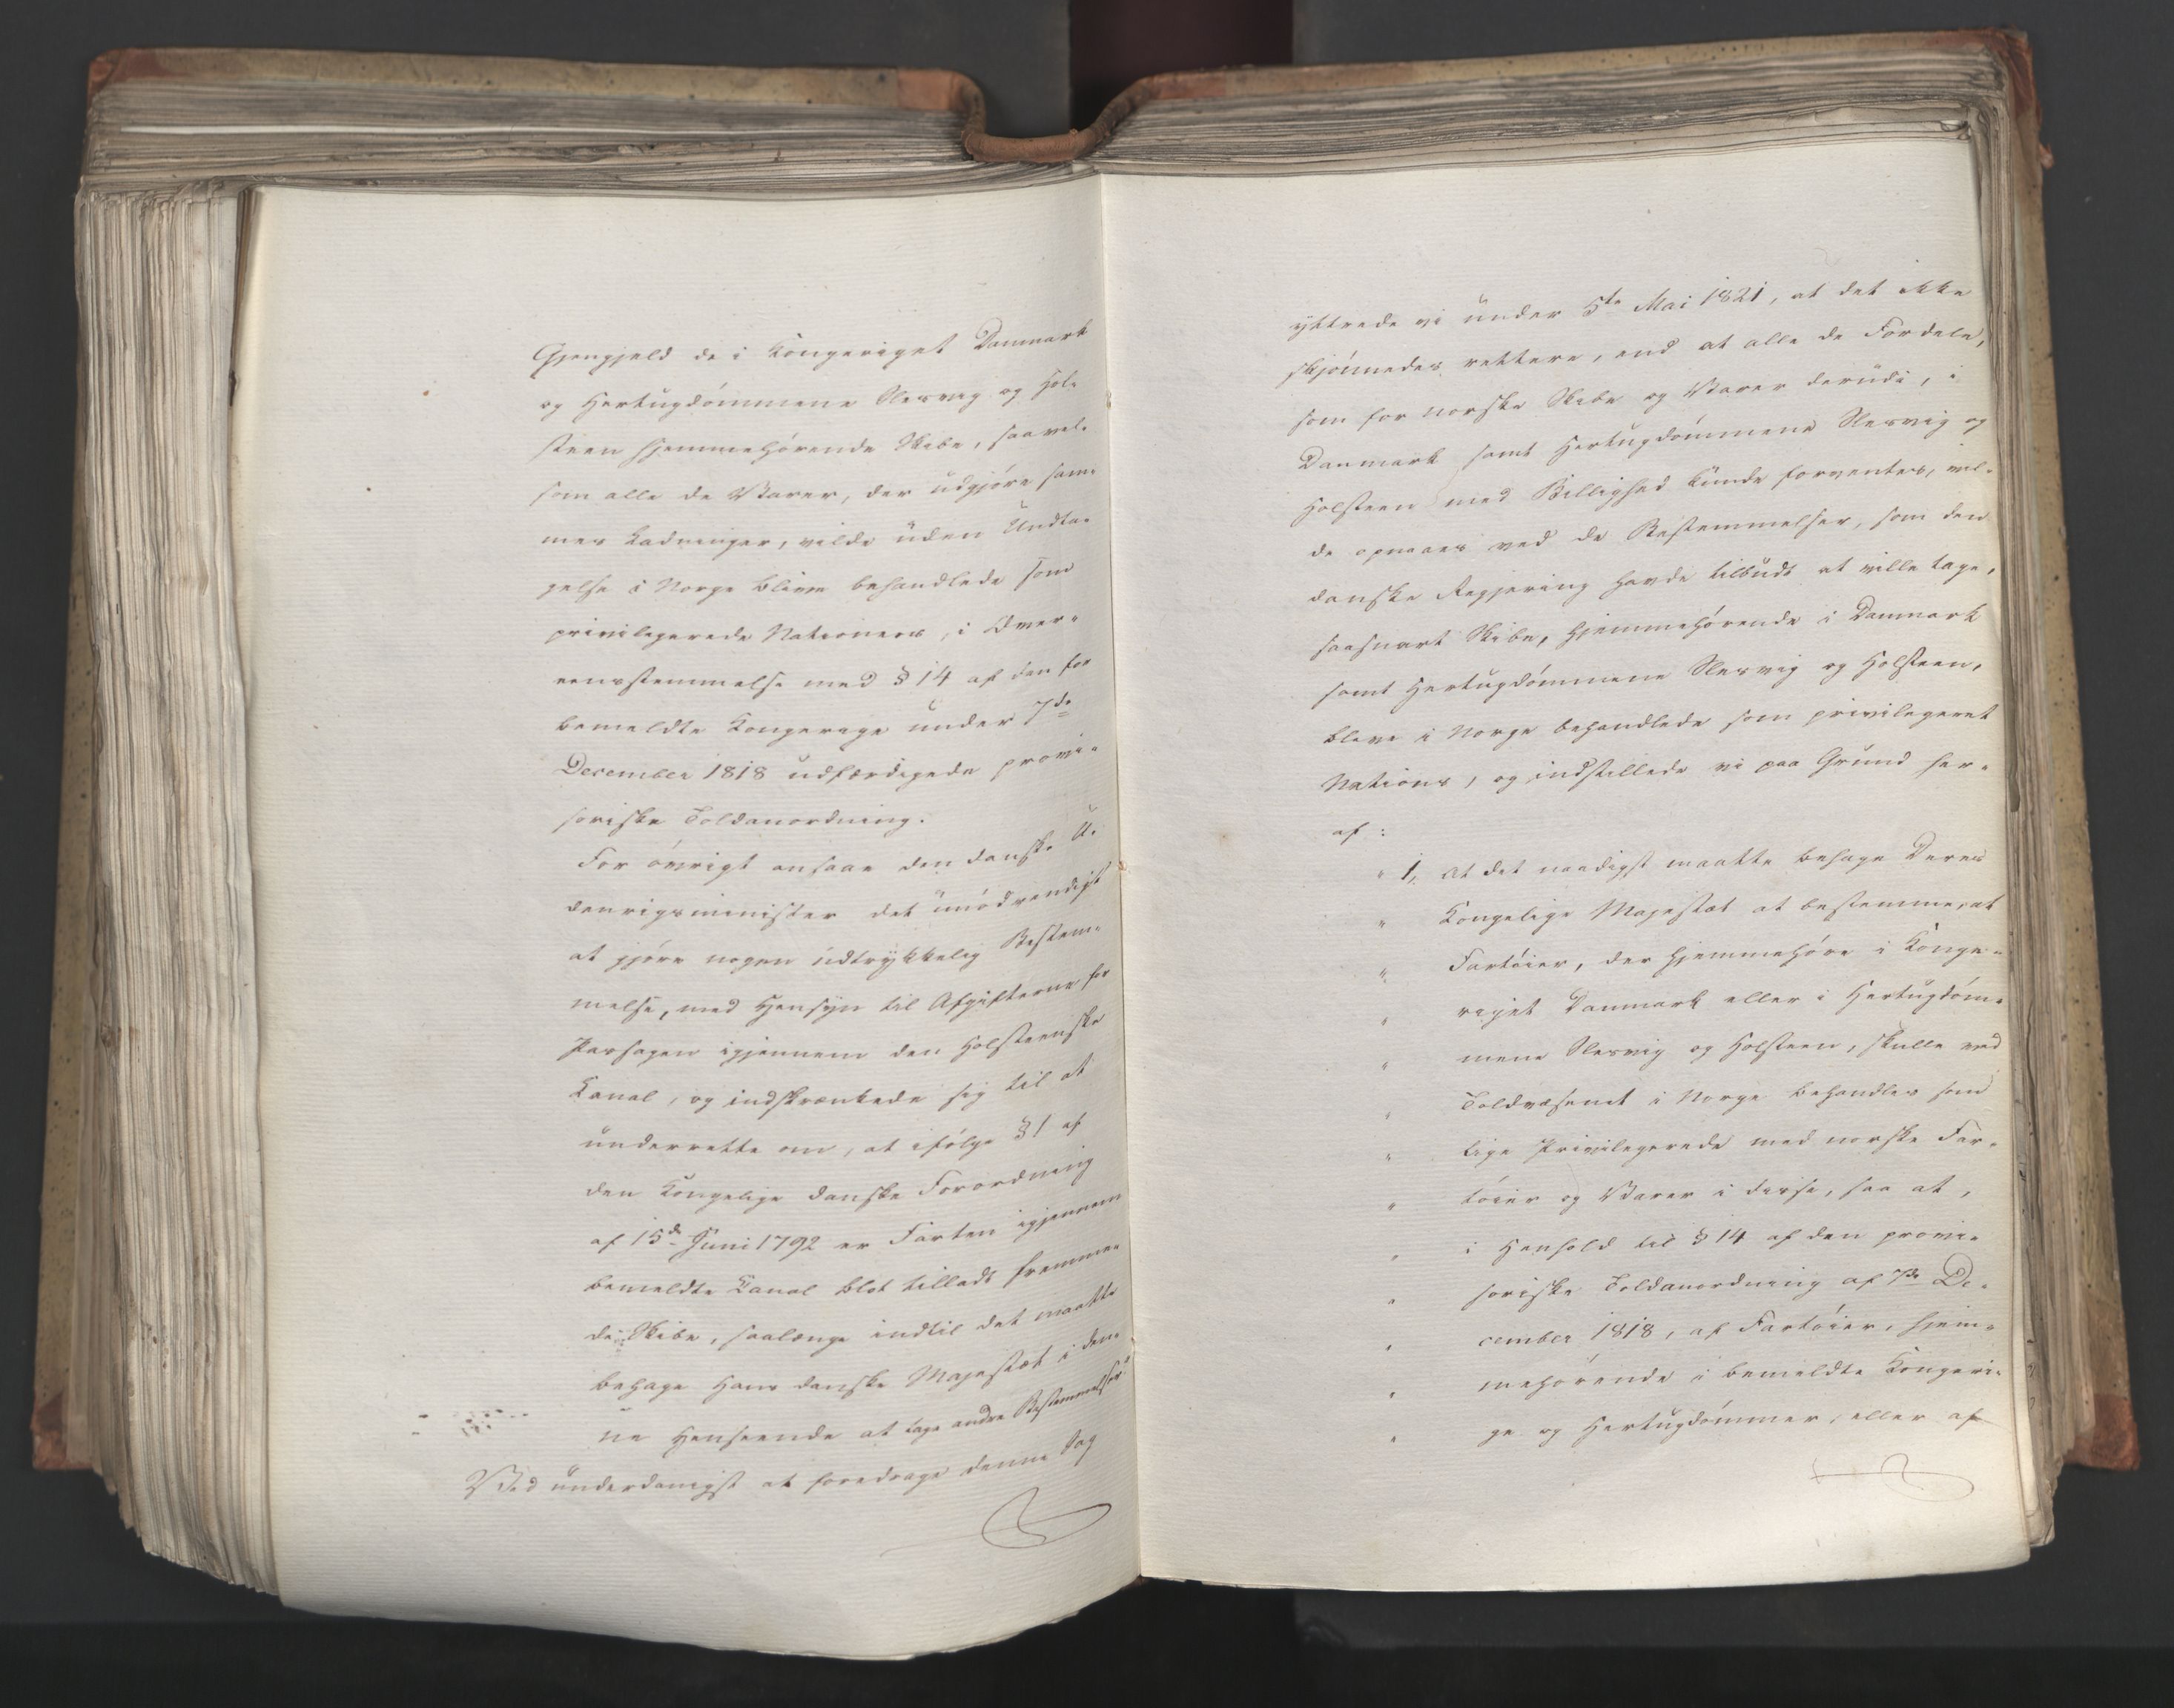 Gjengjeld de i Kongeriget Danmark
og Hertugdömmene Slesvig og Hol-
steen hjemmehörende Skibe, saavel-
som alle de Varer, der udgjöre sam-
mes Ladninger, vilde uden Undta-
gelse i Norge blive behandlede som
privilegerede Nationers, i Over-
eensstemmelse med § 14 af den for
bemeldte Kongerige under 7de
December 1818 udfærdigede provi-
soriske Toldanordning.
For övrigt ansaae den danske U-
denrigsminister det unödvendigt
at gjöre nogen udtrykkelig Bestem-
melse, med Hensyn til Afgifterne for
Passagen igjennem den Holsteenske
Kanal, og indskrænkede sig til at
underrette om, at ifölge § 1 af
den Kongelige danske Forordning
af 15de Juni 1792 er Farten igjennem
bemeldte Canal blot tilladt fremme-
de Skibe, saalænge indtil det maatte
behage Hans danske Majestæt i den-
ne Henseende at tage andre Bestemmelser"
Ved underdanigst at foredrage denne Sag
yttrede vi under 5te Mai 1821, at det ikke
skjönnedes rettere, end at alle de Fordele,
som for norske Skibe og Varer derudi, i
Danmark samt Hertugdömmene Slesvig og
Holsteen med Billighed kunde forventes, vil-
de opnaaes ved de Bestemmelser, som den
danske Regjering havde tilbudt at ville tage,
saasnart Skibe, hjemmehörende i Danmark
samt Hertugdömmene Slesvig og Holsteen,
bleve i Norge behandlede som privilegeret
Nations, og indstillede vi paa Grund her-
af:
" 1, at det naadigst maatte behage Deres
" Kongelige Majestæt at bestemme, at
" Fartöier, der hjemmehöre i Konge-
" riget Danmark eller i Hertugdöm-
" mene Slesvig og Holsteen, skulle ved
" Toldvæsenet i Norge behandles som
" lige Privilegerede med norske Far-
" töier og Varer i disse, saa at,
" i Henhold til § 14 af den provi-
" soriske Toldanordning af 7de De-
" cember 1818, af Fartöier, hjem-
" mehörende i bemeldte Kongeri-
" ge og Hertugdömmer, eller af